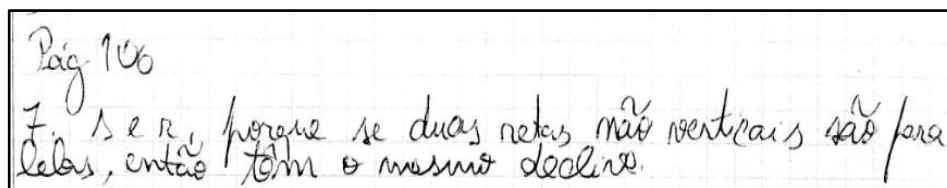 Pág 106
7. s e r, porque se duas retas não verticais são para
lelas, então têm o mesmo declive.